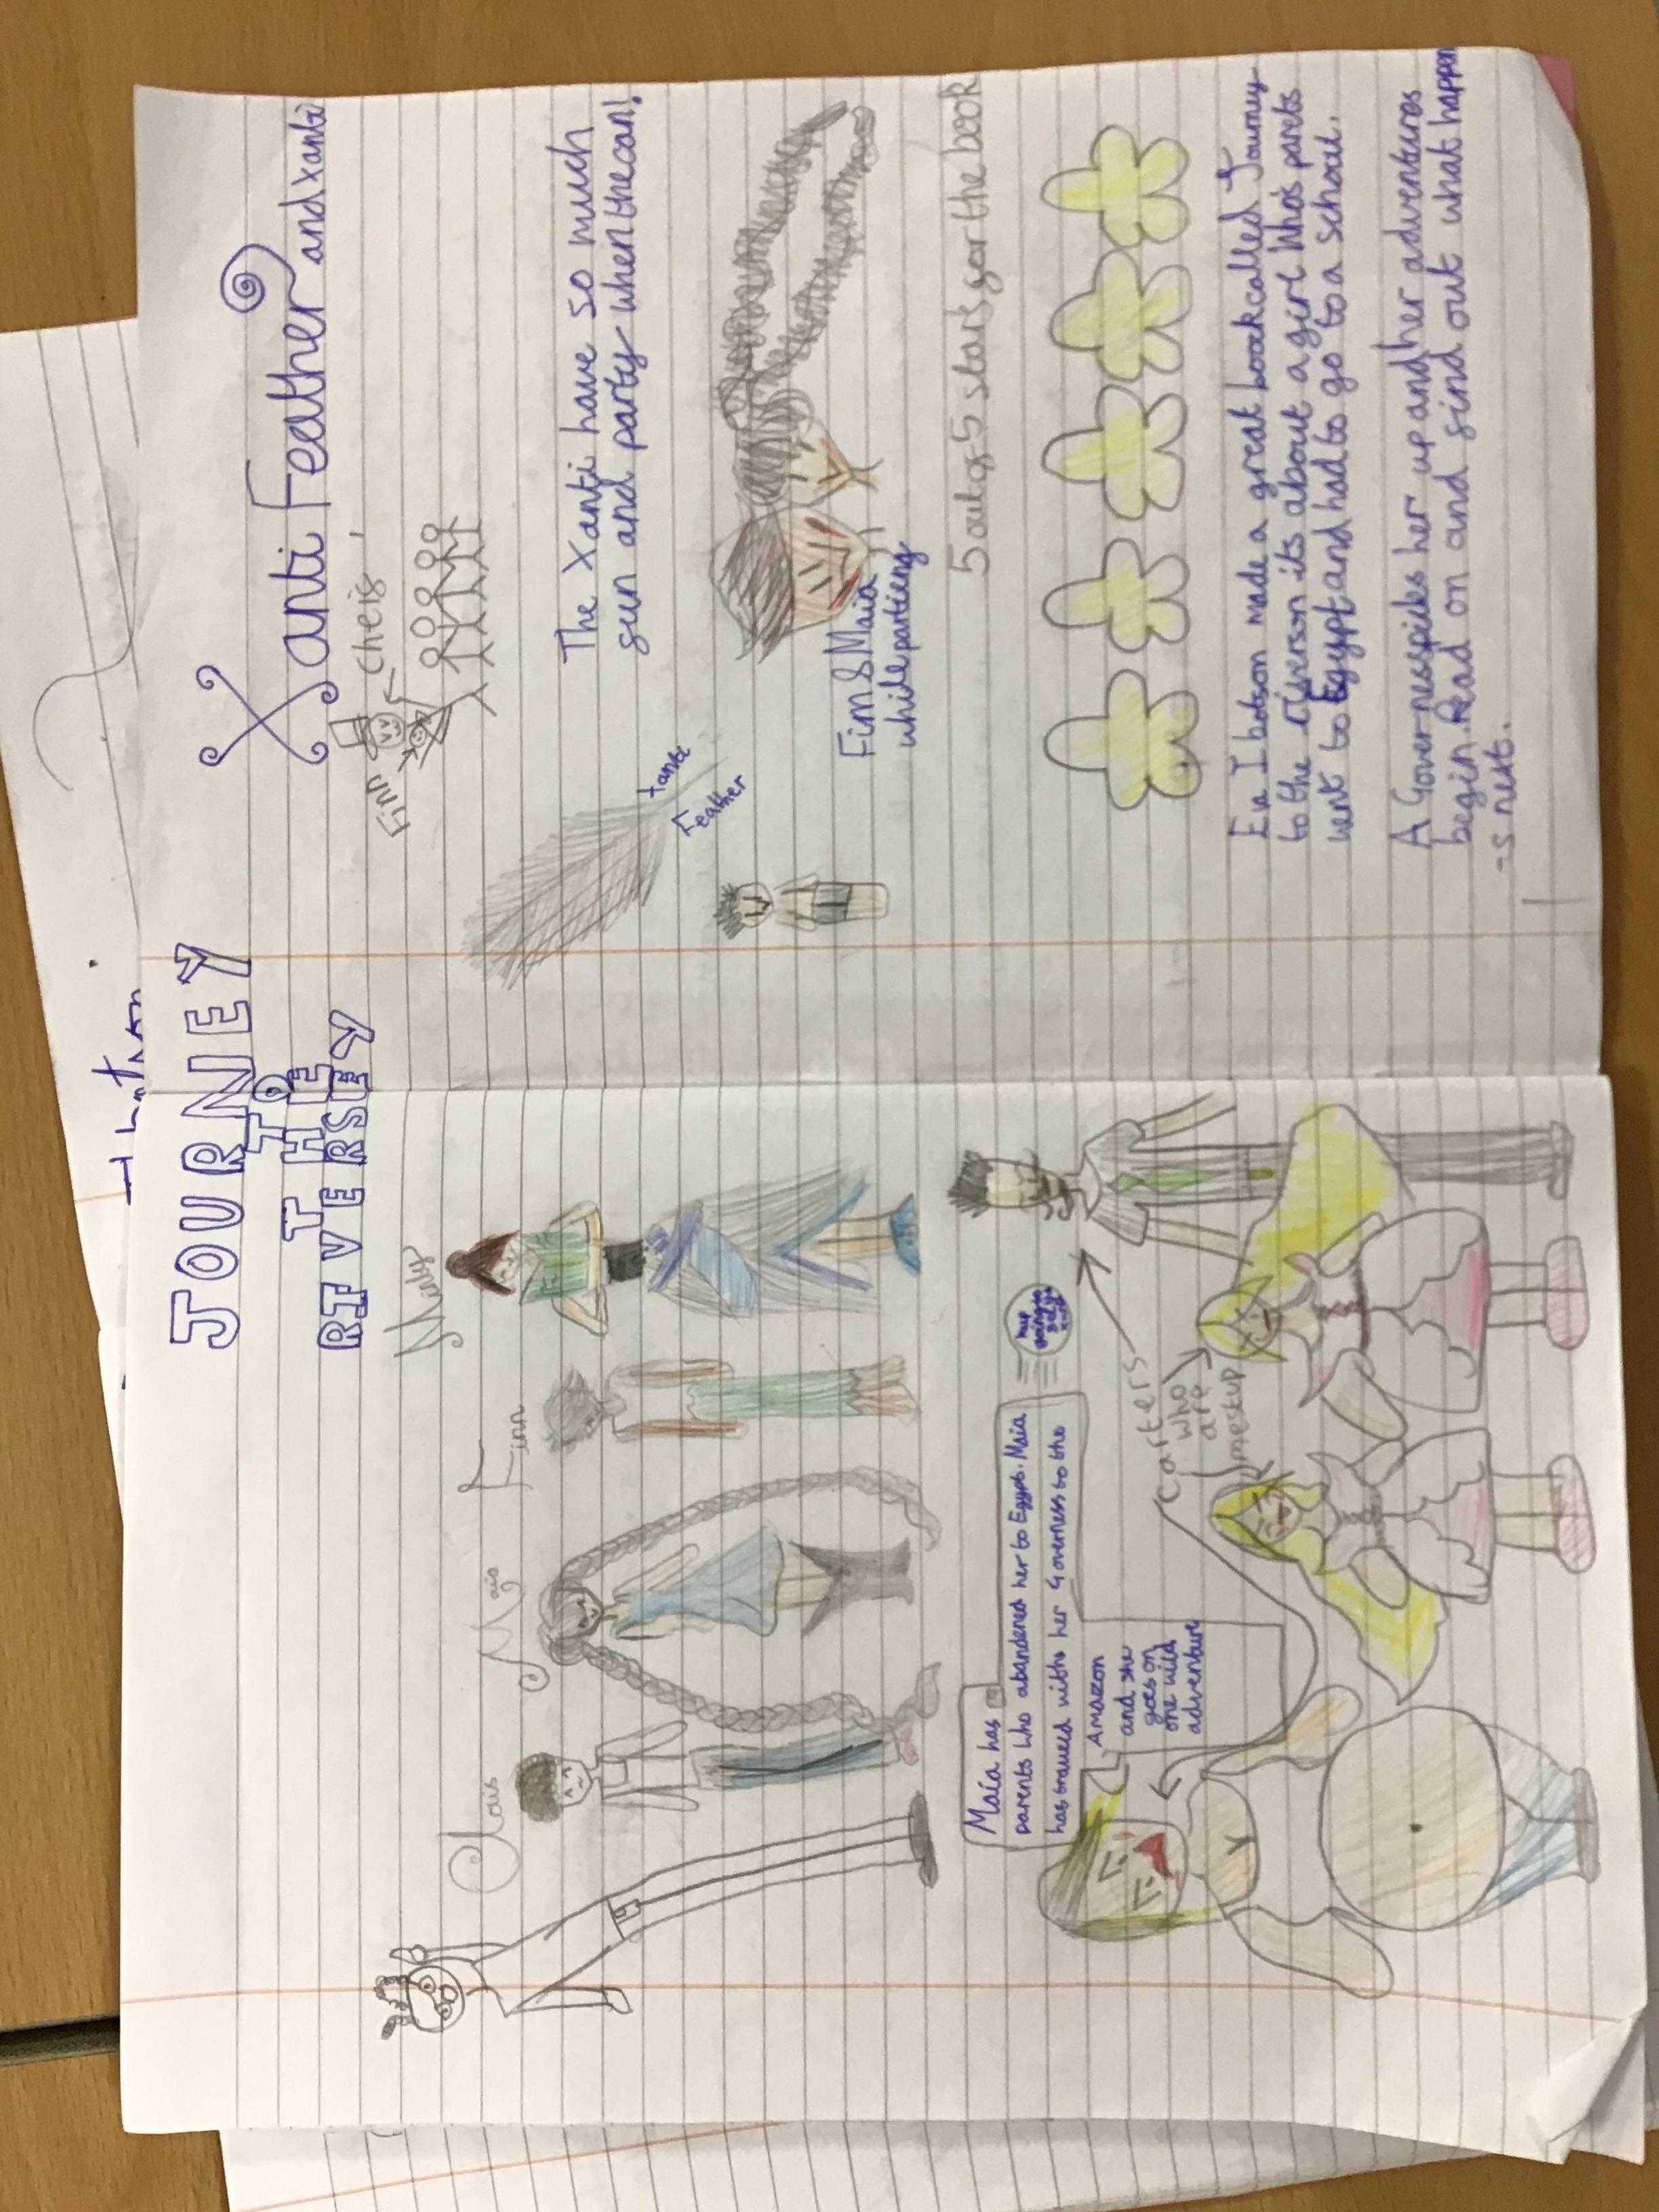 JOURNEY
TO
THE
RIVERSEY
Minty
Finn
Maia
Clovis
Maia has
parents who abandened her to Egypt. Maia
has traveled withs her Governess to the
Amazon
and she
goes on
one wild
adventure
Carters
who
are
messtup
Xanti Feather and Xanti
Finn
cheif
The Xanti have so much
fun and party when they can!
Xanti
Feather
Finn & Maia
while partieng
5 out of 5 stars for the book
Eva Ibotson made a great book called Journey
to the riverson its about a girl who's parets
went to Egypt and had to go to a school.
A Governess picks her up and her adventures
begin. Read on and find out what happen
-s next.